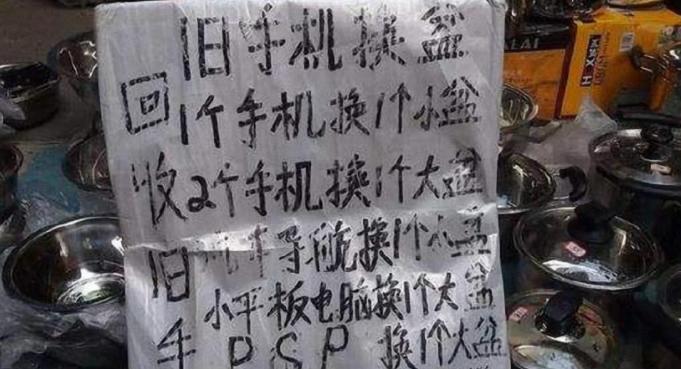 旧手机换盆
回收旧手
1个手机换1个小盆
2个手机换1个大盆
汽车导航换1个小盆
小平板电脑换1个大盆
PSP 换1个大盆